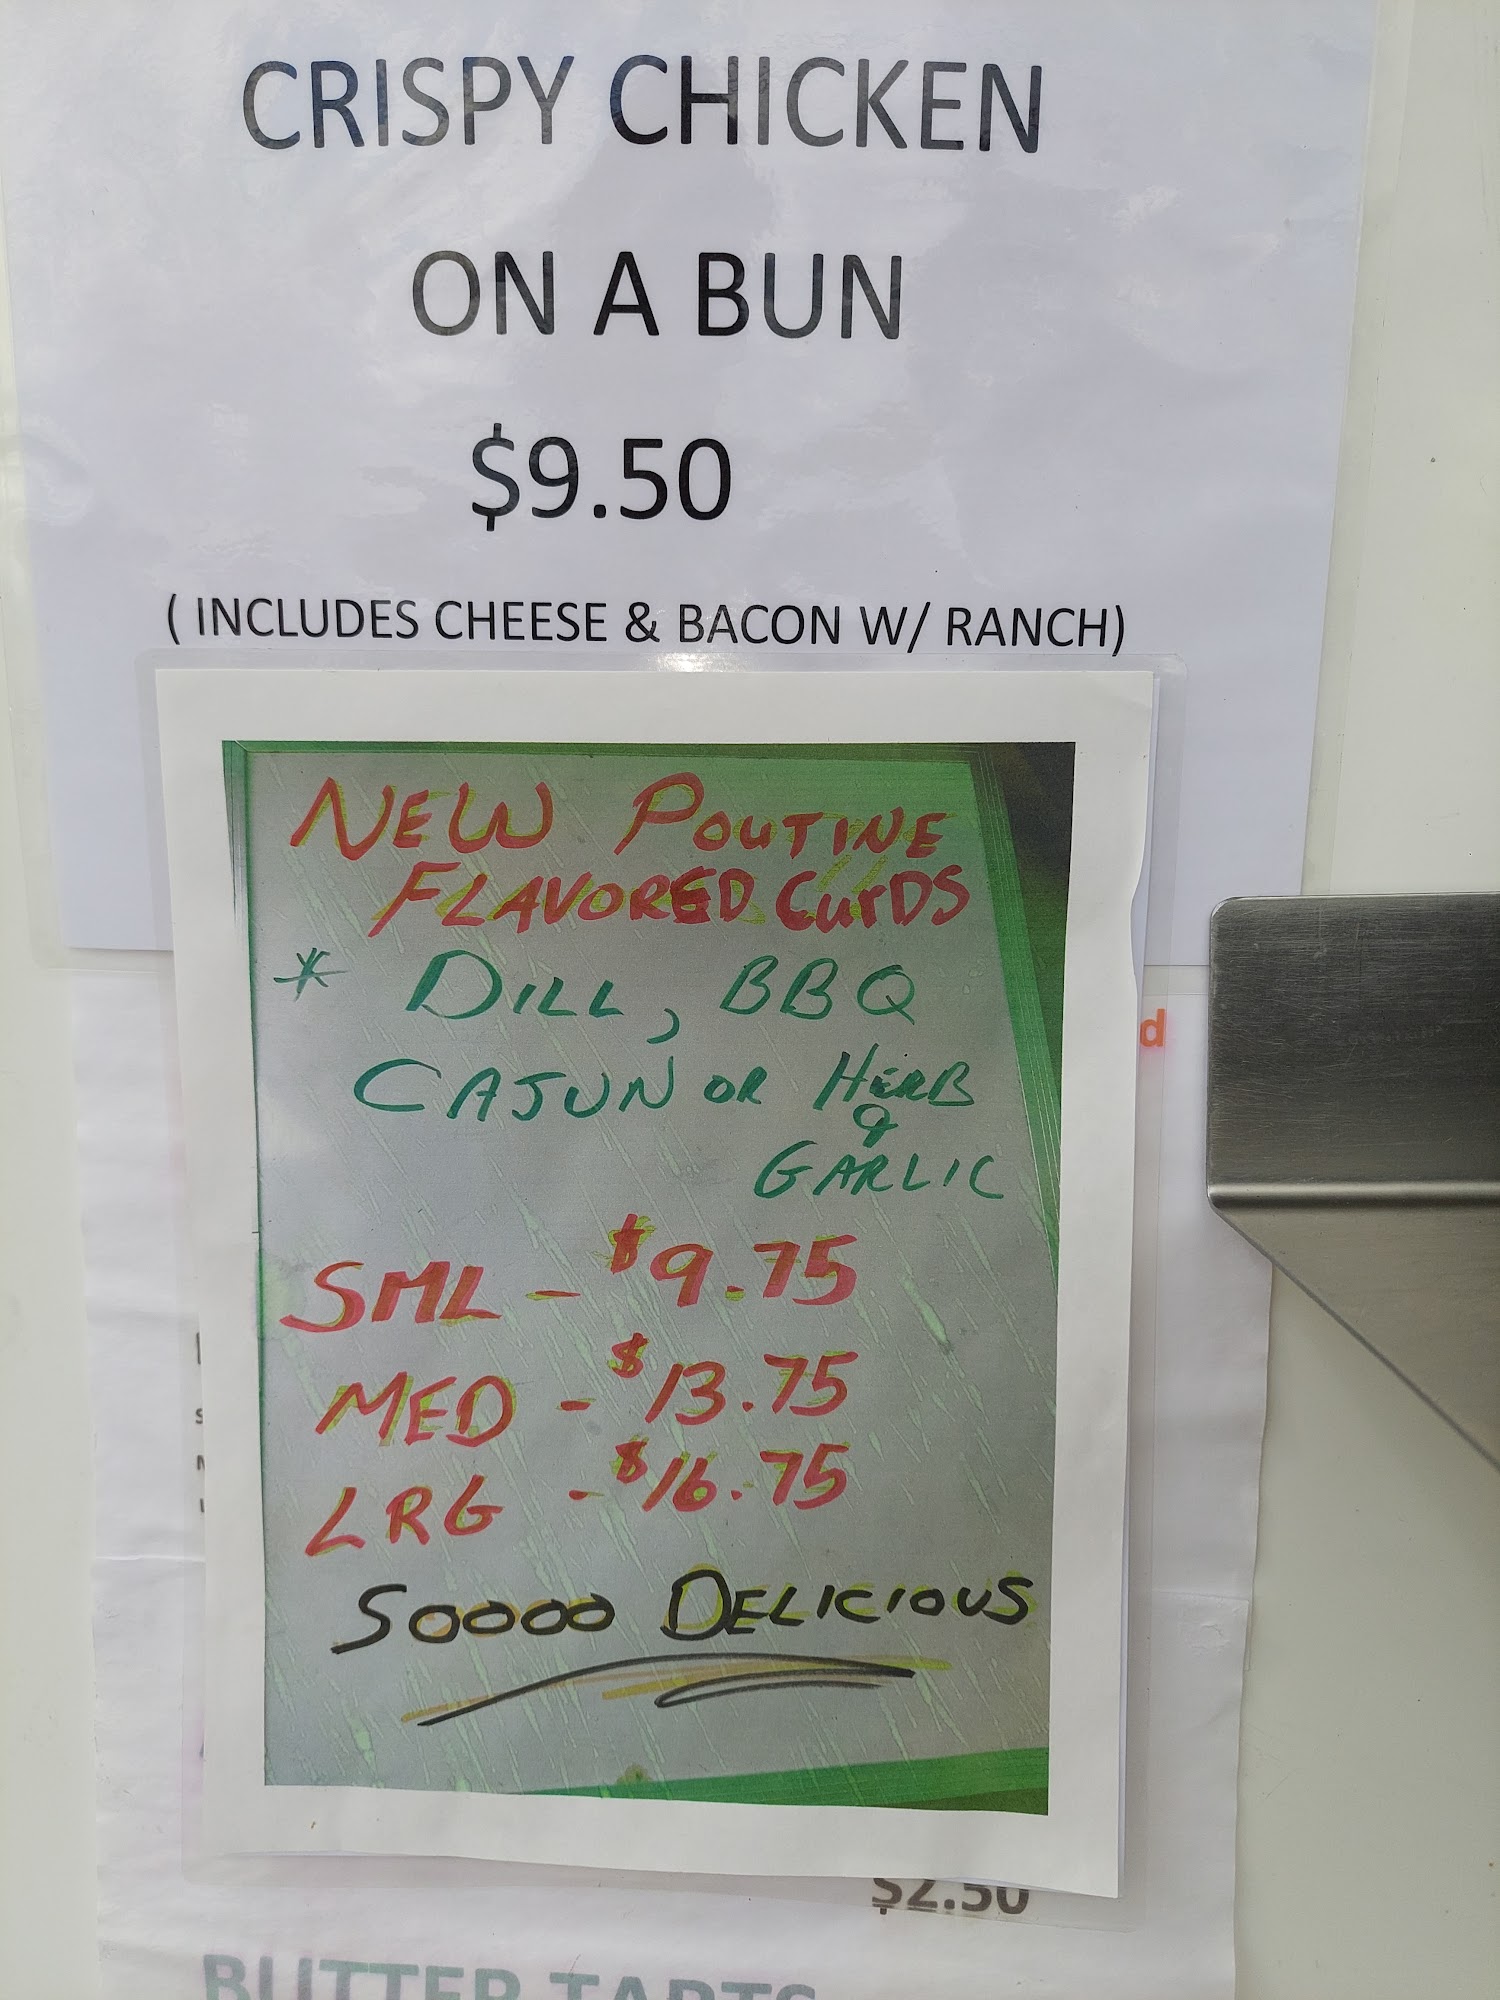 CRISPY CHICKEN
ON A BUN
$9.50
( INCLUDES CHEESE & BACON W/ RANCH)
NEW POUTINE
FLAVORED CurDS
* DILL, BBQ
CAJUN OR HERB
&
GARLIC
SML - $9.75
MED - $13.75
LRG - $16.75
SOOOO DELICIOUS
$2.50
BUTTER TARTS